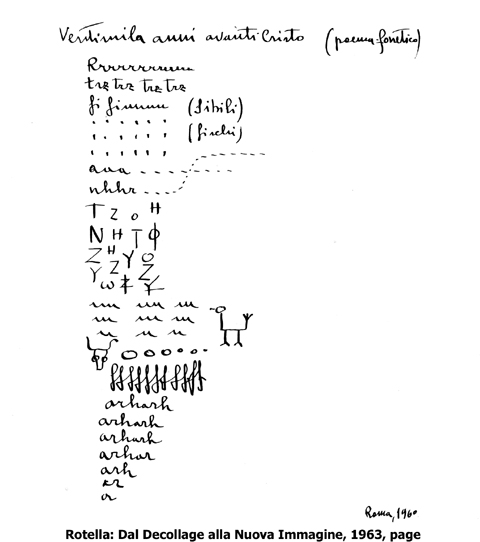 Ventimila anni avanti Cristo (poema: fonetico)
Rrrrrrrrrr
trz trz trz trz
fi fi (sibili)
(fischi)
aaa
nhhr
T Z o H
N H T Φ
Z H Y O
Y Z Z
ω
ffffffffff
arharh
arharh
arharh
arhar
arh
ar
Roma, 1960
Rotella: Dal Decollage alla Nuova Immagine, 1963, page